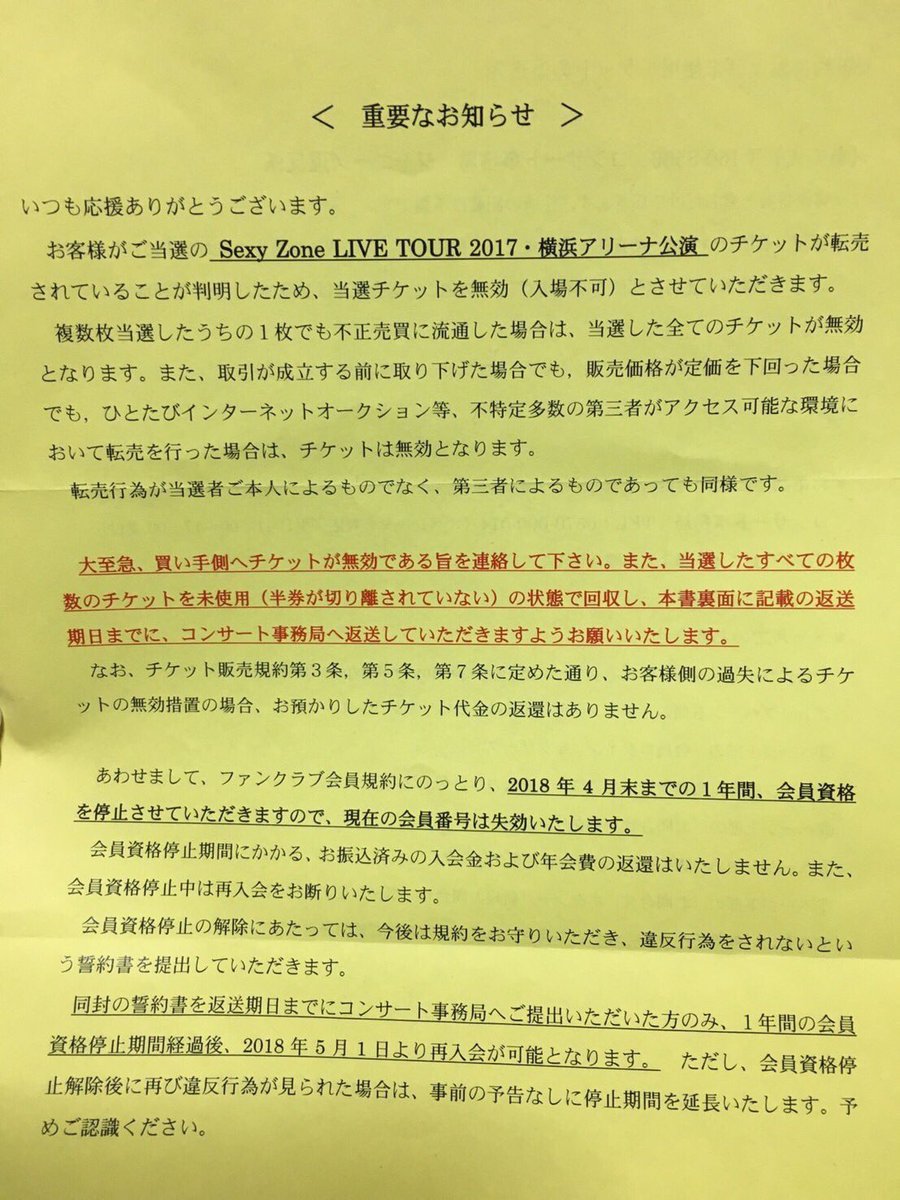 ＜　重要なお知らせ　＞
いつも応援ありがとうございます。
お客様がご当選の Sexy Zone LIVE TOUR 2017・横浜アリーナ公演 のチケットが転売
されていることが判明したため、当選チケットを無効（入場不可）とさせていただきます。
複数枚当選したうちの１枚でも不正売買に流通した場合は、当選した全てのチケットが無効
となります。また、取引が成立する前に取り下げた場合でも，販売価格が定価を下回った場合
でも，ひとたびインターネットオークション等、不特定多数の第三者がアクセス可能な環境に
おいて転売を行った場合は、チケットは無効となります。
転売行為が当選者ご本人によるものでなく、第三者によるものであっても同様です。
大至急、買い手側へチケットが無効である旨を連絡して下さい。また、当選したすべての枚
数のチケットを未使用（半券が切り離されていない）の状態で回収し、本書裏面に記載の返送
期日までに、コンサート事務局へ返送していただきますようお願いいたします。
なお、チケット販売規約第３条，第５条，第７条に定めた通り、お客様側の過失によるチケ
ットの無効措置の場合、お預かりしたチケット代金の返還はありません。
あわせまして、ファンクラブ会員規約にのっとり、2018 年 4 月末までの１年間、会員資格
を停止させていただきますので、現在の会員番号は失効いたします。
会員資格停止期間にかかる、お振込済みの入会金および年会費の返還はいたしません。また、
会員資格停止中は再入会をお断りいたします。
会員資格停止の解除にあたっては、今後は規約をお守りいただき、違反行為をされないとい
う誓約書を提出していただきます。
同封の誓約書を返送期日までにコンサート事務局へご提出いただいた方のみ、１年間の会員
資格停止期間経過後、2018 年 5 月 1 日より再入会が可能となります。　ただし、会員資格停
止解除後に再び違反行為が見られた場合は、事前の予告なしに停止期間を延長いたします。予
めご認識ください。